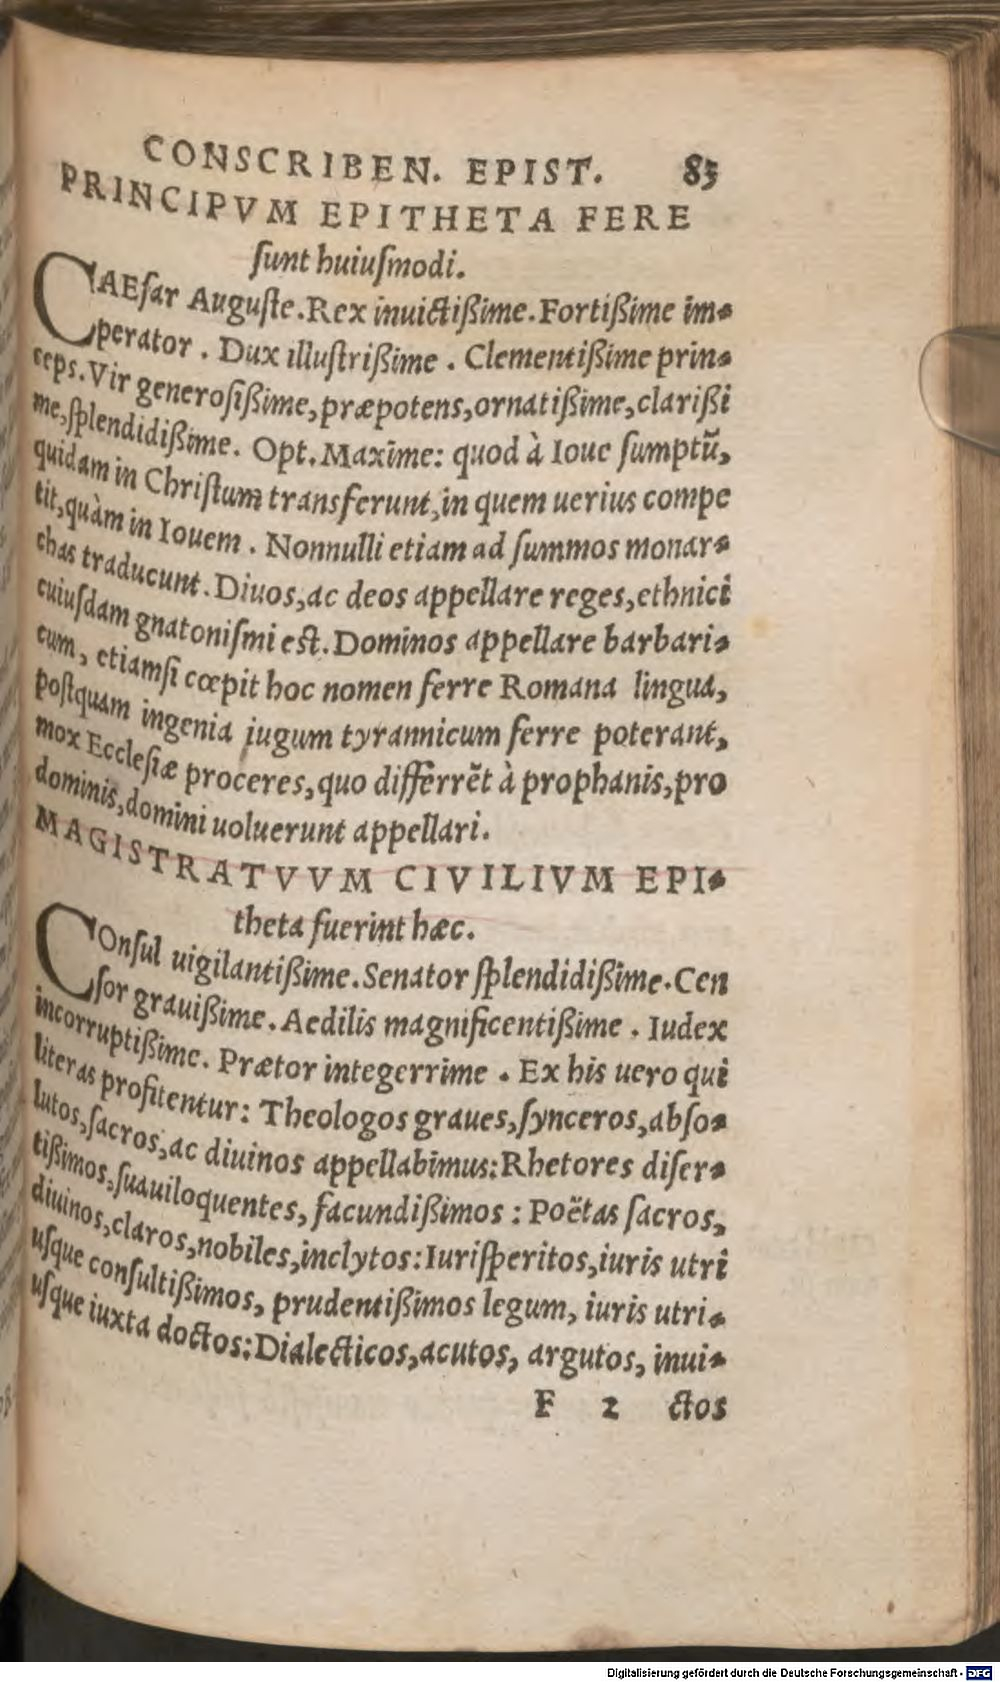 CONSCRIBEN. EPIST. 83
PRINCIPVM EPITHETA FERE
ſunt huiuſmodi.
CAEſar Auguſte. Rex inuictißime. Fortißime im-
perator. Dux illuſtrißime. Clementißime prin-
ceps. Vir generoſißime, præpotens, ornatißime, clarißi
me, ſplendidißime. Opt. Maxime: quod à Ioue ſumptũ,
quidam in Chriſtum transferunt, in quem uerius compe
tit, quàm in Iouem. Nonnulli etiam ad ſummos monar-
chas traducunt. Diuos, ac deos appellare reges, ethnici
cuiuſdam gnatoniſmi eſt. Dominos appellare barbari-
cum, etiamſi cœpit hoc nomen ferre Romana lingua,
poſtquam ingenia iugum tyrannicum ferre poterant,
mox Eccleſiæ proceres, quo differrẽt à prophanis, pro
dominis, domini uoluerunt appellari.
MAGISTRATVVM CIVILIVM EPI-
theta fuerint hæc.
COnſul uigilantißime. Senator ſplendidißime. Cen
ſor grauißime. Aedilis magnificentißime. Iudex
incorruptißime. Prætor integerrime. Ex his uero qui
literas profitentur: Theologos graues, ſynceros, abſo-
lutos, ſacros, ac diuinos appellabimus: Rhetores diſer-
tißimos, ſuauiloquentes, facundißimos: Poëtas ſacros,
diuinos, claros, nobiles, inclytos: Iuriſperitos, iuris utri
uſque conſultißimos, prudentißimos legum, iuris utri-
uſque iuxta doctos: Dialecticos, acutos, argutos, inui-
F 2 ctos
Digitalisierung gefördert durch die Deutsche Forschungsgemeinschaft - DFG